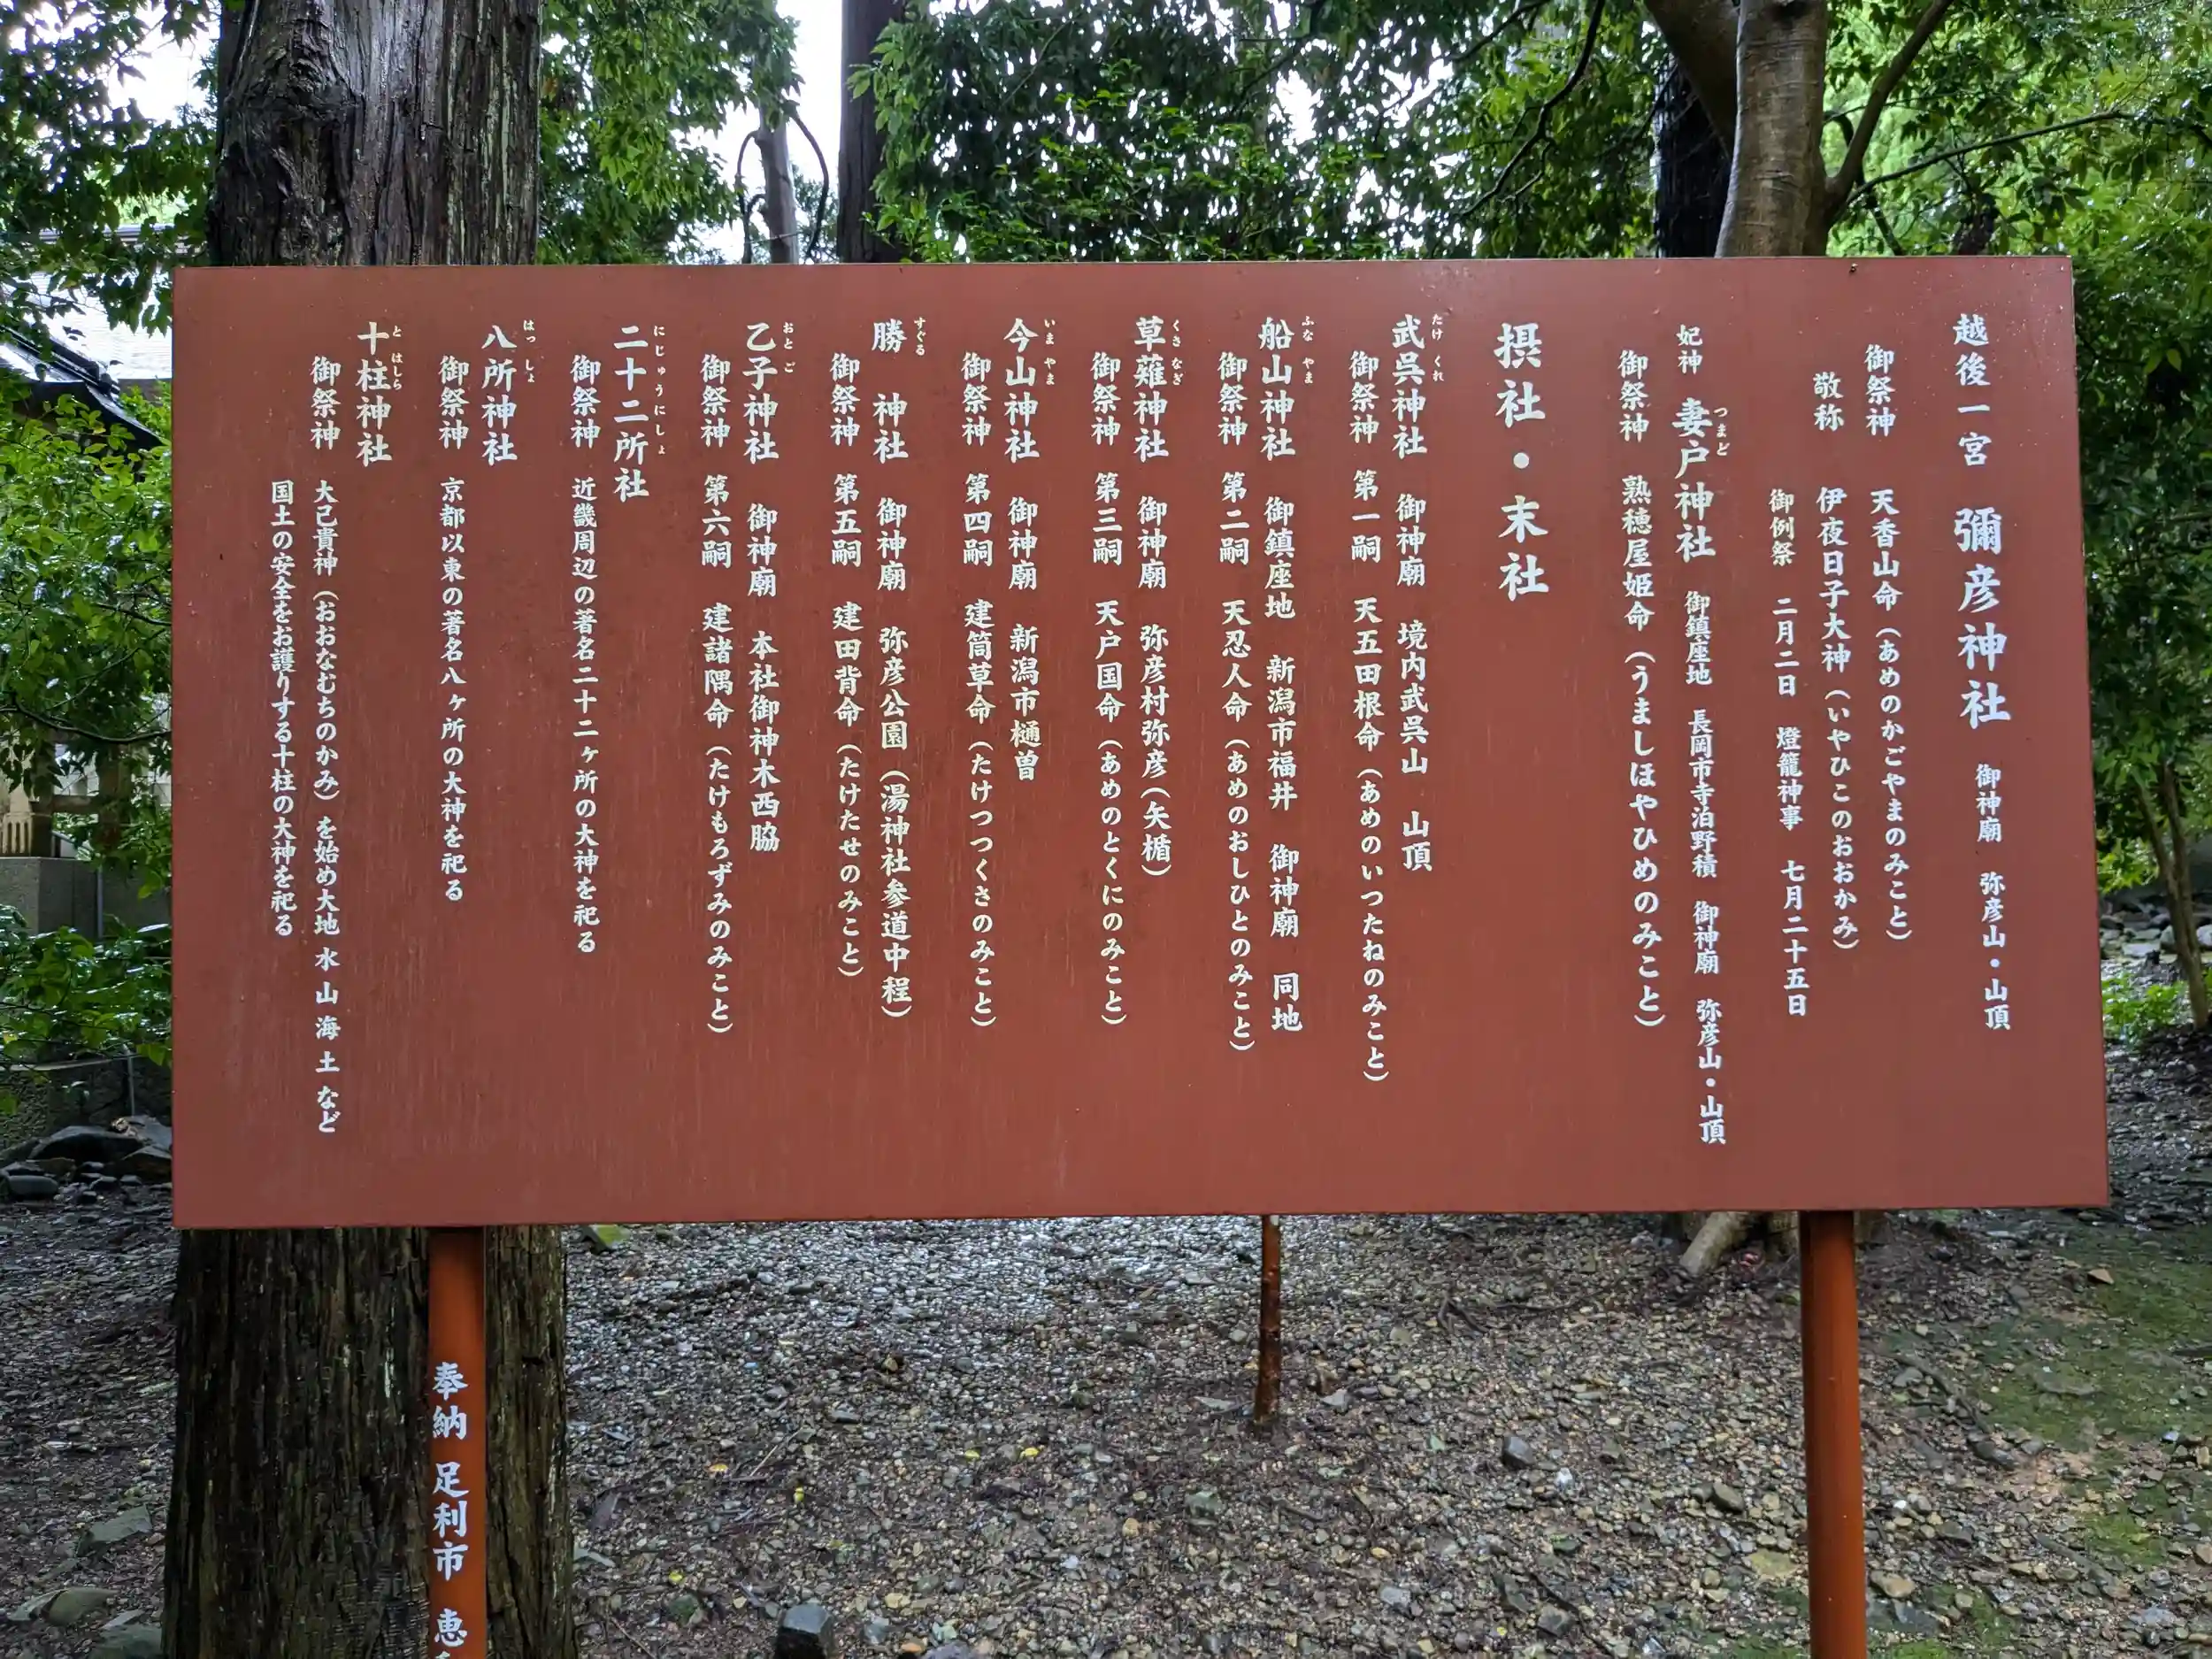 越後一宮 彌彦神社 御神廟 弥彦山・山頂
御祭神 天香山命（あめのかごやまのみこと）
敬称 伊夜日子大神（いやひこのおおかみ）
御例祭 二月二日 燈籠神事 七月二十五日
つまど
妃神 妻戸神社 御鎮座地 長岡市寺泊野積 御神廟 弥彦山・山頂
御祭神 熟穂屋姫命（うましほやひめのみこと）
摂社・末社
たけくれ
武呉神社 御神廟 境内武呉山 山頂
御祭神 第一嗣 天五田根命（あめのいつたねのみこと）
ふなやま
船山神社 御鎮座地 新潟市福井 御神廟 同地
御祭神 第二嗣 天忍人命（あめのおしひとのみこと）
くさなぎ
草薙神社 御神廟 弥彦村弥彦（矢楯）
御祭神 第三嗣 天戸国命（あめのとくにのみこと）
いまやま
今山神社 御神廟 新潟市樋曽
御祭神 第四嗣 建筒草命（たけつつくさのみこと）
すぐる
勝 神社 御神廟 弥彦公園（湯神社参道中程）
御祭神 第五嗣 建田背命（たけたせのみこと）
おとご
乙子神社 御神廟 本社御神木西脇
御祭神 第六嗣 建諸隅命（たけもろずみのみこと）
にじゅうにしょ
二十二所社
御祭神 近畿周辺の著名二十二ヶ所の大神を祀る
はっしょ
八所神社
御祭神 京都以東の著名八ヶ所の大神を祀る
とはしら
十柱神社
御祭神 大己貴神（おおなむちのかみ）を始め大地 水 山 海 土 など
国土の安全をお護りする十柱の大神を祀る
奉納 足利市 恵